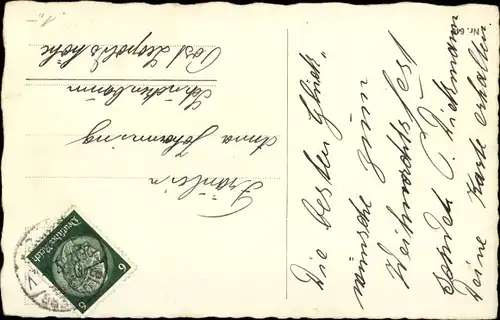 Die besten Glück-
wünsche zum
Weihnachtsfest
sendet C. Dickmann
Deine Karte erhalten.
Fräulein
Anna Johanning
Post Leopoldshöhe
Deutsches Reich
6
6
Nr. 66